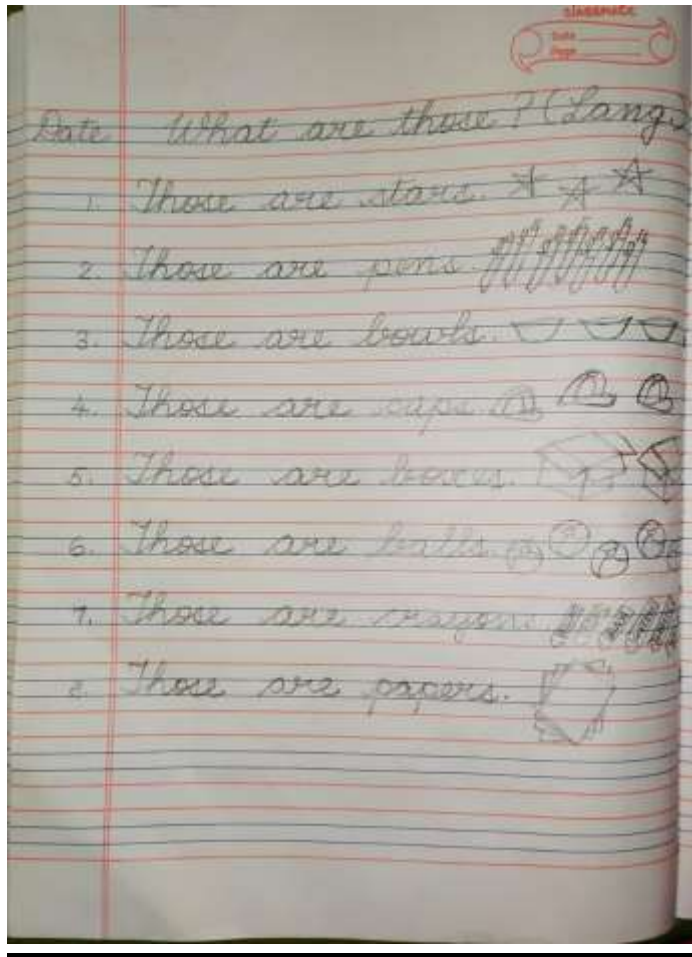 classmate
Date
Page
Date What are those? (Lang.)
1. Those are stars.
2. Those are pens.
3. Those are bowls.
4. Those are caps.
5. Those are boxes.
6. Those are balls.
7. Those are crayons.
8. Those are papers.